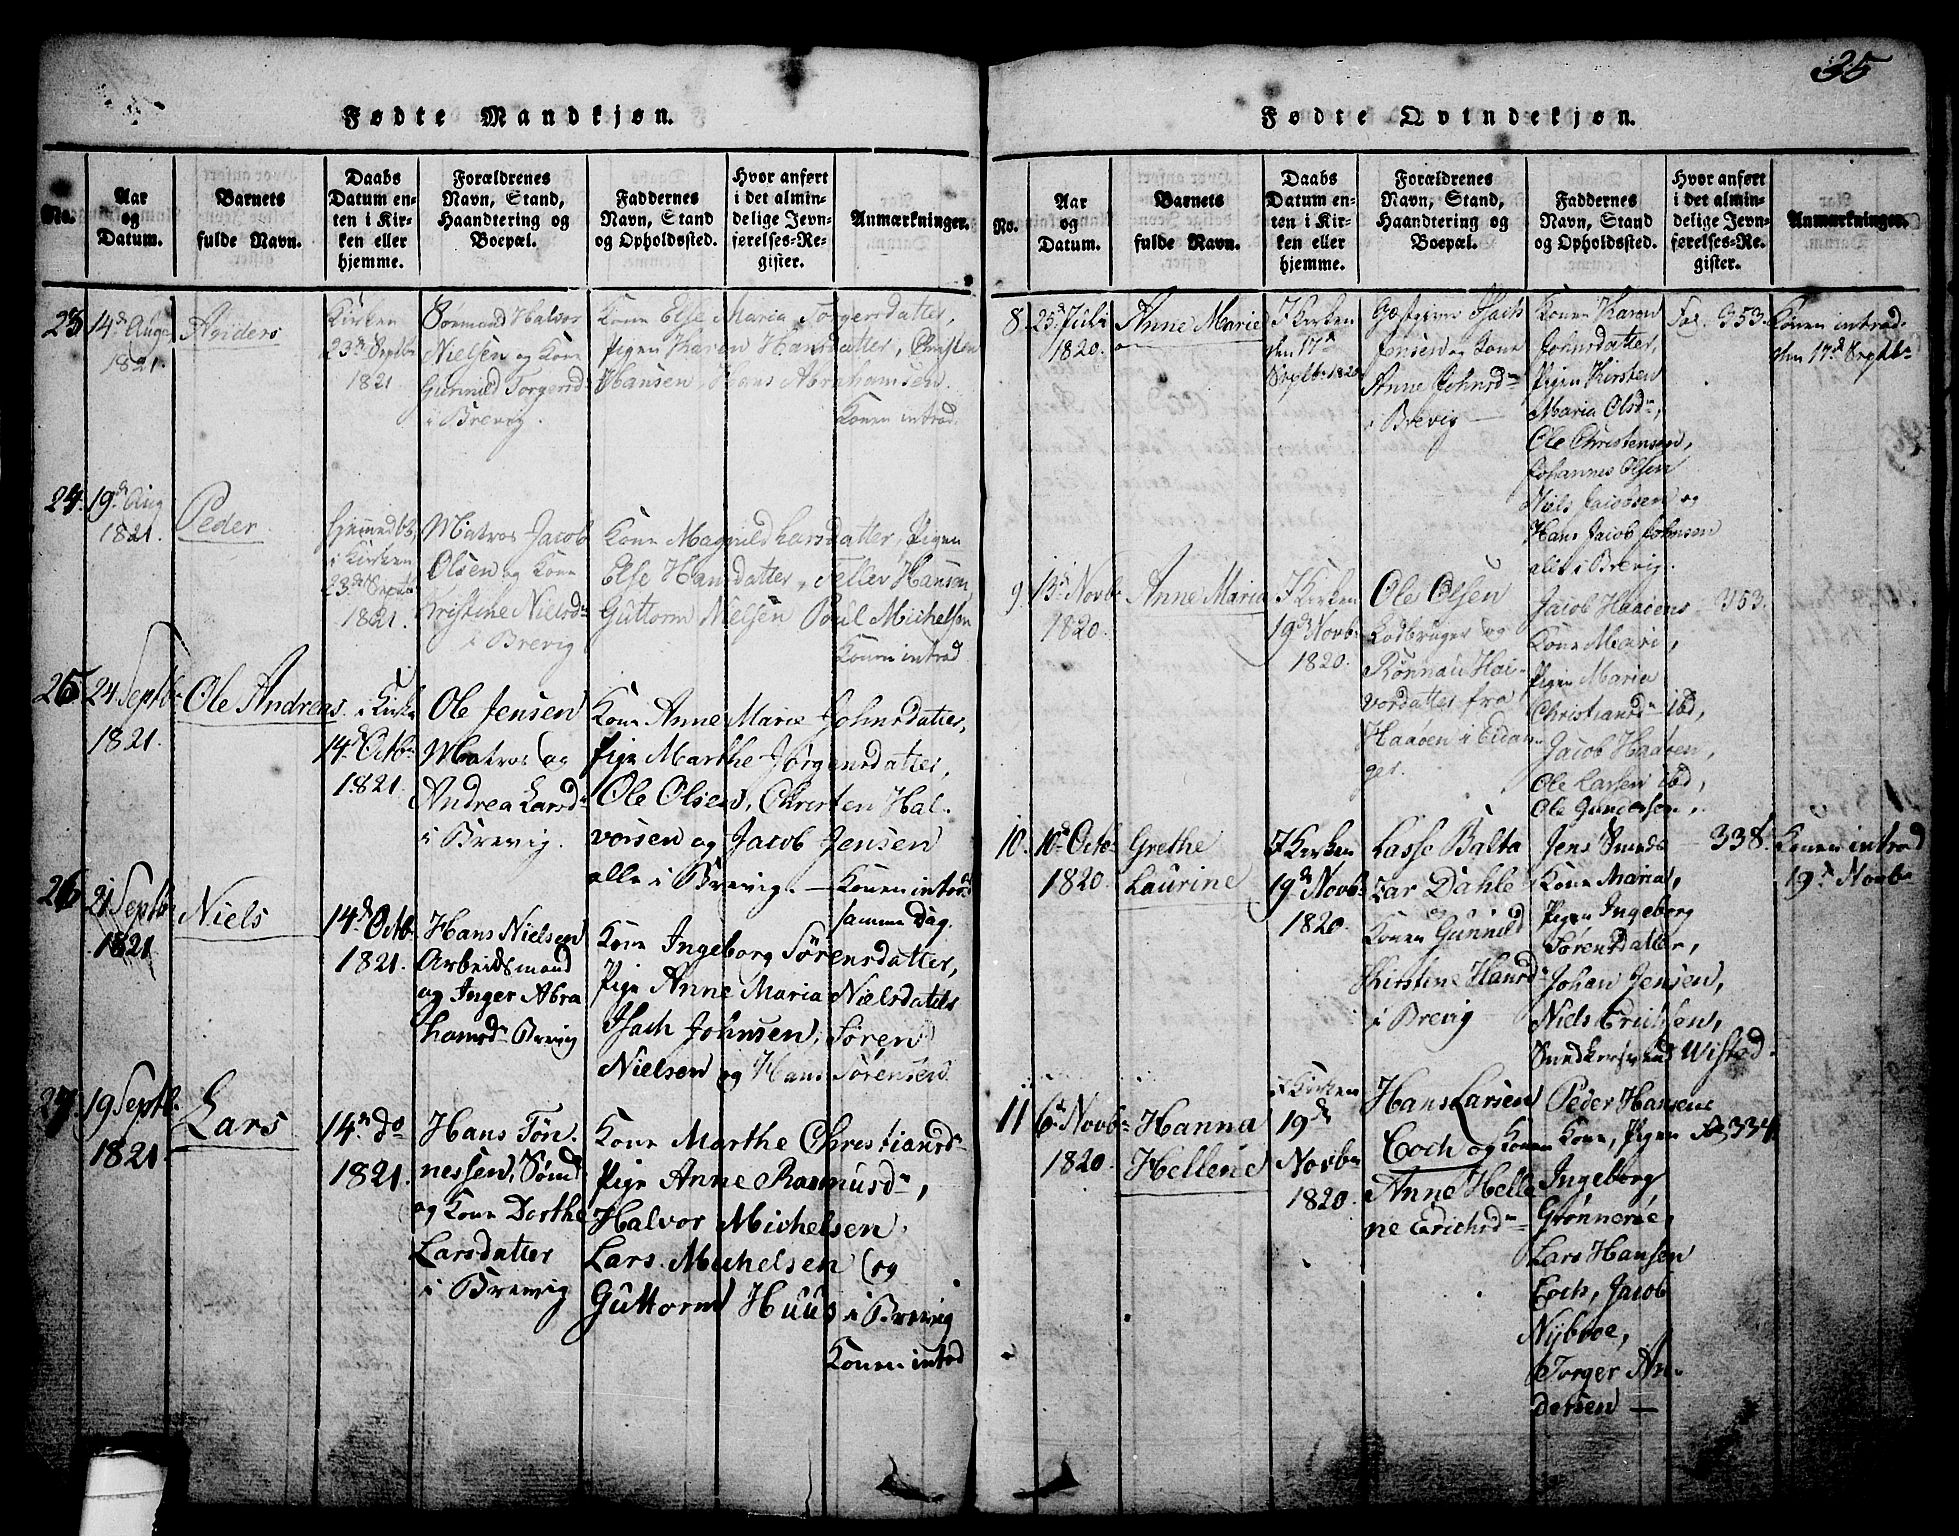 35
Fødte Mandkjøn.
No.
Aar
og
Datum.
Barnets
fulde Navn.
Daabs
Datum en-
ten i Kir-
ken eller
hjemme.
Forældrenes
Navn, Stand,
Haandtering og
Boepæl.
Faddernes
Navn, Stand
og Opholdssted.
Hvor anført
i det almin-
delige Jevn-
førelses-Re-
gister.
Anmærkninger.
23
14de Aug.
1821.
Anders
Kirken
23de Septbr
1821.
Sørmand Halvor
Nielsen og Kone
Gunnild Torgersd
i Brevig.
Kone Else Maria Torgersdatter,
Pigen Karen Hansdatter, Christen
Hansen Hans Abrahamsen.
Konen introd.
24.
19de Aug
1821.
Peder
i Kirken
23de Septbr
1821.
Matros Jacob
Olsen og Kone
Kristine Nielsdr
i Brevig
Kone Magnild Larsdatter, Pigen
Else Hansdatter, Tellev Hansen
Guttorm Nielsen Poul Michelsen
Konen introd
25
24 Septb.
1821.
Ole Andreas.
i Kirke
14de Octbr
1821.
Ole Jensen
Matros og
Andrea Larsdr
i Brevig.
Kone Anne Marie Johnsdatter,
Pige Marthe Jørgensdatter,
Ole Olsen, Christen Hal-
vorsen og Jacob Jensen
alle i Brevig. — Konen introd
samme Dag.
26
21 Septbr
1821.
Niels
14de Octb.
1821.
Hans Nielsen
Arbeidsmand
og Inger Abra
hamsdr Brevig
Kone Ingeborg Sørensdatter,
Pige Anne Maria Nielsdatter
Isach Johnsen, Søren
Nielsen og Hans Sørensen.
27.
19 Septb.
1821.
Lars
14de do
1821.
Hans Tøn-
nessen, Sømd
og Kone Dorthe
Larsdatter
i Brevig
Kone Marthe Christiansdr
Pige Anne Rasmusdr,
Halvor Michelsen,
Lars Michelsen og
Guttorm Huus i Brevig
Konen introd
Fødte Qvindekjøn.
No.
Aar
og
Datum.
Barnets
fulde Navn.
Daabs
Datum en-
ten i Kir-
ken eller
hjemme.
Forældrenes
Navn, Stand,
Haandtering og
Boepæl.
Faddernes
Navn, Stand
og Opholdssted.
Hvor anført
i det almin-
delige Jevn-
førelses-Re-
gister.
Anmærkninger.
8.
25de Juli
1820.
Anne Marie
I Kirken
den 17de
Septbr 1820
Isach
Jensen og Kone
Anne Johnsdr
i Brevig
Konen Karen
Johnsdatter,
Pigen Kirsten
Maria Olsdr,
Ole Christensen,
Johannes Olsen
Niels Jacobsen og
Hans Jacob Johnsen
alle i Brevig.
Fol. 353.
Konen introd.
den 17de Septbr
9.
13de Novbr
1820.
Anne Maria
I Kirken
19de Novbr
1820.
Ole Olsen
Rønnau Hal-
vordatter fra
Haaøen i Eidan-
ger.
Jacob Haaøens
Kone Mari,
Pigen Maria
Christiansdr ibd,
Jacob Haaøen,
Ole Larsen ibd,
Ole Gundersen.
353.
10.
10de Octbr
1820.
Grethe
Laurine
I Kirken
19de Novbr
1820.
Lasse Balta
zar Dahle
og
Konen Gunnild
Kirstine Hansdr
i Brevig
Jens Smeds
Kone Maria,
Pigen Ingeborg
Sørensdatter,
Johan Jensen,
Niels Erichsen,
Wistad.
338.
Konen introd
19de Novbr
11
6te Novbr
1820.
Hanna
Hellene
I Kirken
19de
Novbr
1820.
Hans Larsen
Coch og Konen
Anne Helle
ne Erichsdr
Peder Hansens
Kone, Pigen
Ingeborg
Grønneröe,
Lars Hansen
Coch, Jacob
Nijbroe,
Torger An-
dersen —
334